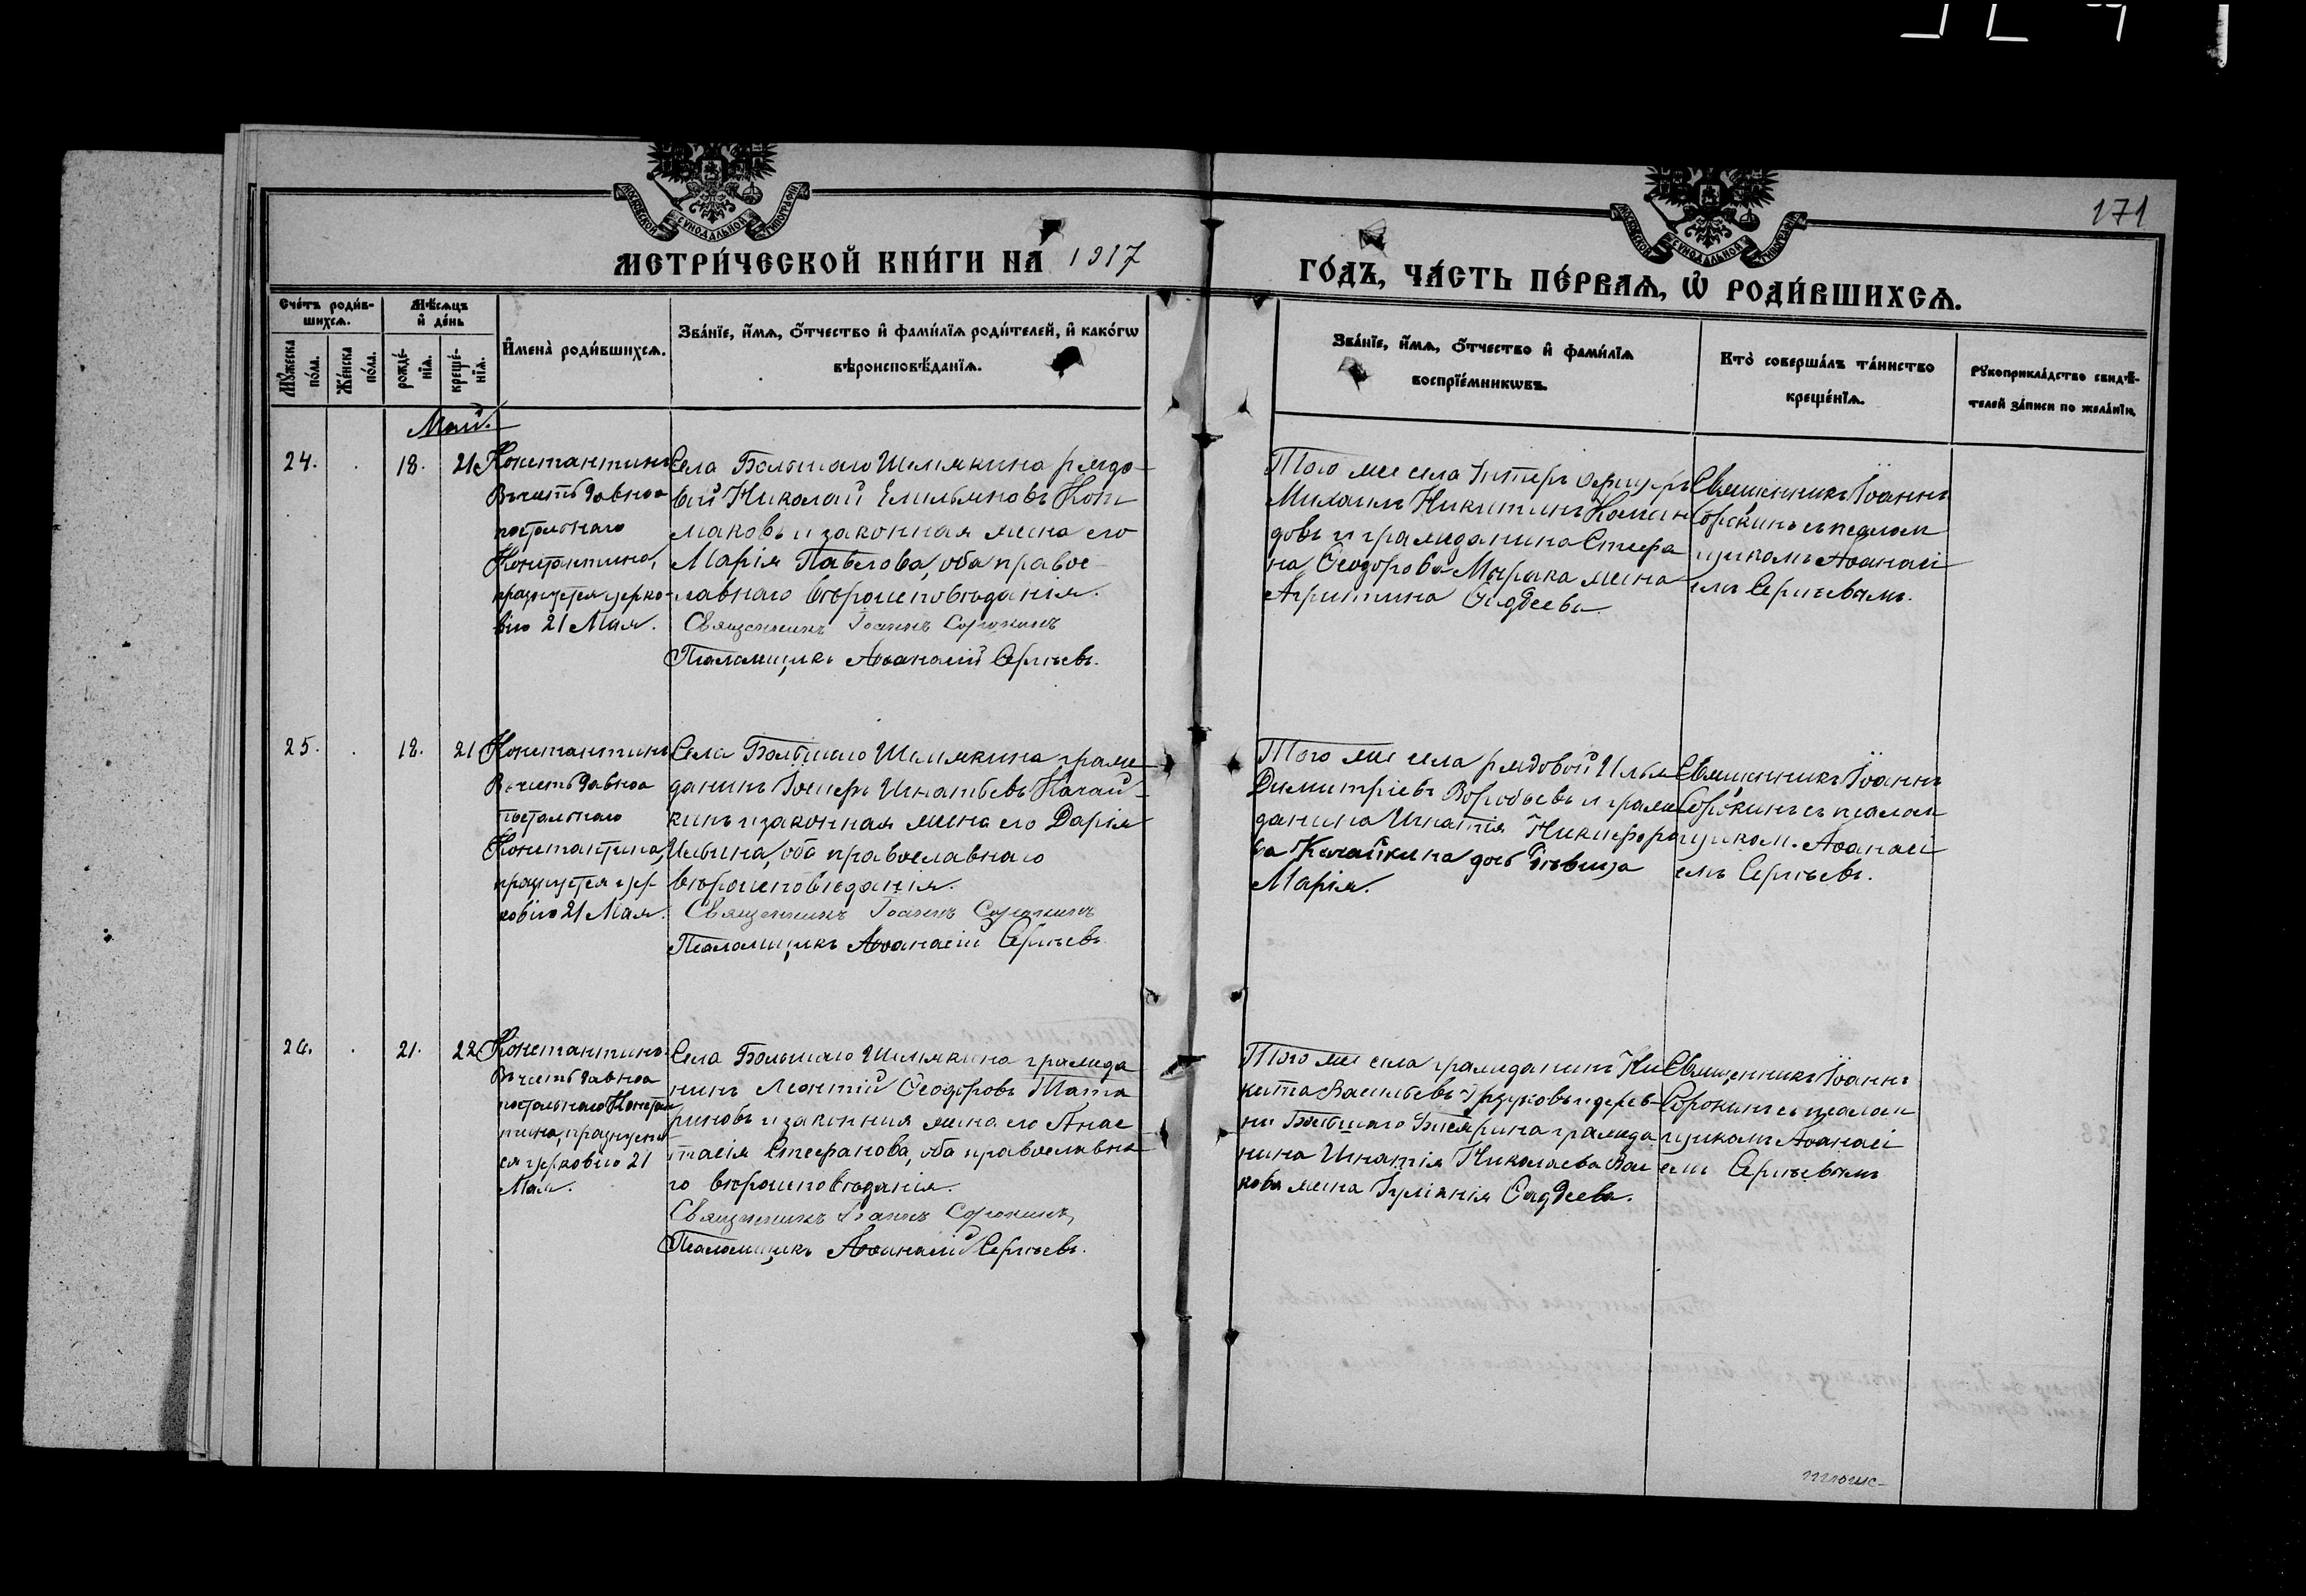 171
МОСКОВСКОЙ СѴНОДАЛЬНОЙ ТИПОГРАФІИ
МОСКОВСКОЙ СѴНОДАЛЬНОЙ ТИПОГРАФІИ
МЕТРИ́ЧЕСКОЙ КНИ́ГИ НА 1917
ГО́ДЪ, ЧА́СТЬ ПЕ́РВАѦ, Ѽ РОДИ́ВШИХСѦ.
Сче́тъ роди́в-
шихсѧ.
Мѣ́сѧцъ
и҆ де́нь
Мꙋ́жеска
по́ла.
Же́нска
по́ла.
рожде́-
нїѧ.
креще́-
нїѧ.
И҆мена̀ роди́вшихсѧ.
Зва́нїе, и҆́мѧ, ѻ҆́тчество и҆ фами́лїѧ роди́телей, и҆ како́гѡ
вѣроисповѣ́данїѧ.
Зва́нїе, и҆́мѧ, ѻ҆́тчество и҆ фами́лїѧ
воспрїе́мникѡвъ.
Кто̀ соверша́лъ та́инство
креще́нїѧ.
Рꙋкоприкла́дство свидѣ́-
телей за́писи по жела́нїю.
Май.
24. . 18. 21
Константинъ
Въ честь равноа
постольнаго
Константина,
празнуется церко-
вію 21 Мая.
Села Большаго Шемякина рядо-
вой Николай Емельяновъ Кол
маковъ и законная жена его
Марія Павлова, оба правос-
лавнаго вѣроисповѣданія.
Священникъ Іоаннъ Сорокинъ
Псаломщикъ Аѳанасій Сергѣевъ.
Того же села Унтеръ офицеръ
Михаилъ Никитинъ
довъ и гражданина Стефа
на Ѳеодорова жена
Агрипина Ѳаддеева.
Священникъ Іоаннъ
Сорокинъ съ псалом
щикомъ Аѳанасі
емъ Сергѣевымъ.
25. . 18. 21
Константинъ
Въ честь равноа
постольнаго
Константина,
празнуется цер-
ковію 21 Мая.
Села Большаго Шемякина граж-
данинъ Іосифъ Игнатьевъ Качай-
кинъ и законная жена его Дарія
Ильина, оба православнаго
вѣроисповѣданія.
Священникъ Іоаннъ Сорокинъ
Псаломщикъ Аѳанасій Сергѣевъ
Того же села рядовой Илья
Димитріевъ Воробьевъ и граж
данина Игнатія Никифоро
ва Качайкина дочь дѣвица
Марія.
Священникъ Іоаннъ
Сорокинъ съ псалом
щиком. Аѳанасі
емъ Сергѣевъ.
26. . 21. 22
Константинъ.
Въ честь равноа
постольнаго Констан
тина, празнует
ся церковію 21
Мая.
Села Большаго Шемякина гражда
нинъ Леонтій Ѳеодоровъ Тата
риновъ и законная жена его Анас
тасія Стефанова, оба православна
го вѣроисповѣданія.
Священникъ Іоаннъ Сорокинъ,
Псаломщикъ Аѳанасій Сергѣевъ.
Того же села гражданинъ Ни
кита Васильевъ и дерев-
ни Большаго гражда
нина Игнатія Николаева Вол
кова жена Іуліанія Ѳаддеева.
Священникъ Іоаннъ
Сорокинъ съ псалом
щикомъ Аѳанасі
емъ Сергѣевымъ